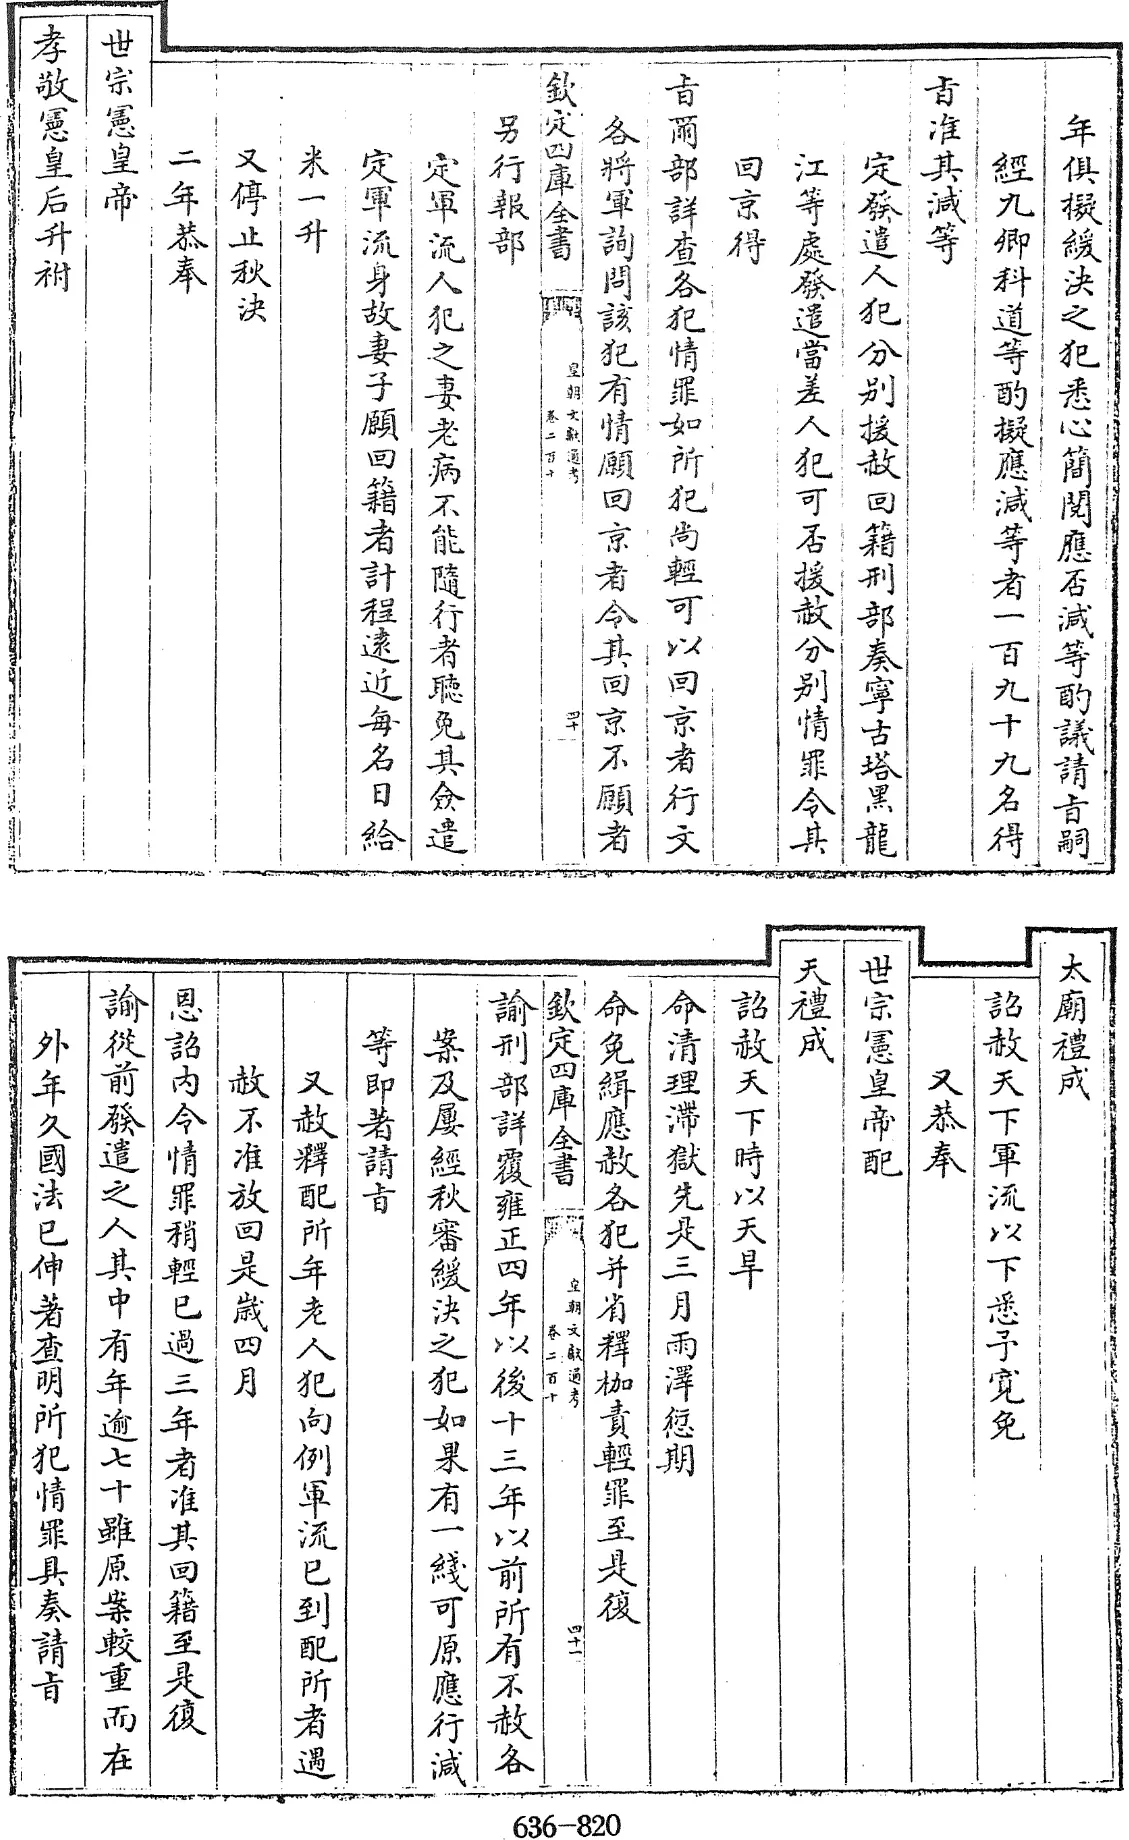 年俱擬緩決之犯悉心簡閱應否減等酌議請旨嗣
經九卿科道等酌擬應減等者一百九十九名得
旨准其減等
定發遣人犯分別援赦回籍刑部奏寧古塔黑龍
江等處發遣當差人犯可否援赦分別情罪令其
回京得
旨爾部詳查各犯情罪如所犯尚輕可以回京者行文
各將軍詢問該犯有情願回京者令其回京不願者
欽定四庫全書
皇朝文獻通考
卷二百十
四十
另行報部
定軍流人犯之妻老病不能隨行者聽免其僉遣
定軍流身故妻子願回籍者計程遠近每名日給
米一升
又停止秋決
二年恭奉
世宗憲皇帝
孝敬憲皇后升祔
太廟禮成
詔赦天下軍流以下悉予寬免
又恭奉
世宗憲皇帝配
天禮成
詔赦天下時以天旱
命清理滯獄先是三月雨澤愆期
命免緝應赦各犯并省釋枷責輕罪至是復
欽定四庫全書
皇朝文獻通考
卷二百十
四十一
諭刑部詳覆雍正四年以後十三年以前所有不赦各
案及屢經秋審緩決之犯如果有一綫可原應行減
等即著請旨
又赦釋配所年老人犯向例軍流已到配所者遇
赦不准放回是歲四月
恩詔內令情罪稍輕已過三年者准其回籍至是復
諭從前發遣之人其中有年逾七十雖原案較重而在
外年久國法已伸著查明所犯情罪具奏請旨
636-820